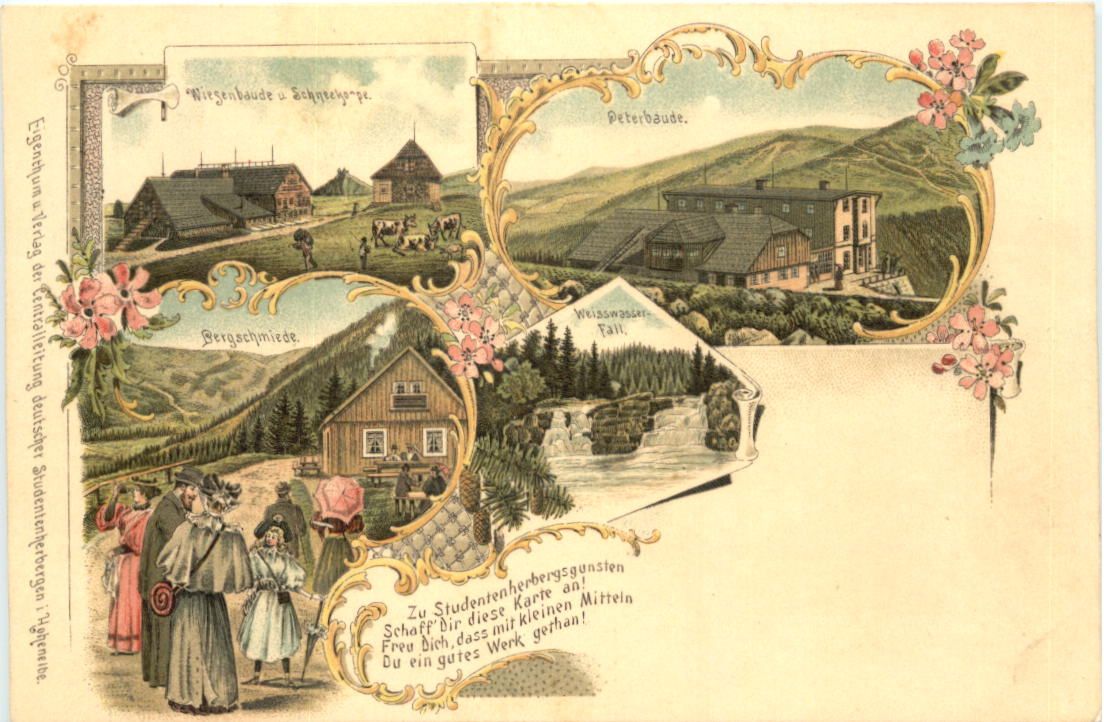 Wiesenbaude u. Schneekoppe.
Peterbaude.
Bergschmiede.
Weisswasser-
Fall.
Zu Studentenherbergsgunsten
Schaff' Dir diese Karte an!
Freu Dich, dass mit kleinen Mitteln
Du ein gutes Werk gethan!
Eigenthum u. Verlag der Centralleitung deutscher Studentenherbergen i. Hohenelbe.